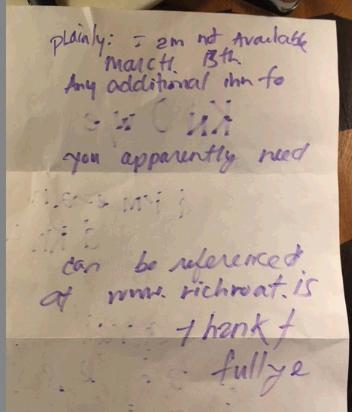 plainly: I am not Available
March 13th
Any additional inn fo
you apparently need
can be referenced
at www.richroat.is
thank f
fully e